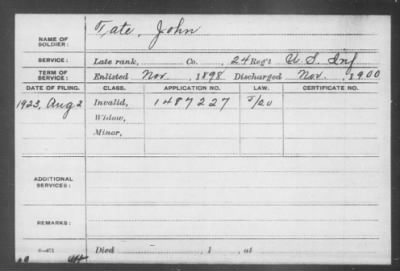 NAME OF SOLDIER: Tate, John
SERVICE: Late rank, Co. 24 Reg't U.S. Inf
TERM OF SERVICE: Enlisted Nov. 1898 Discharged Nov. 1900
DATE OF FILING. CLASS. APPLICATION NO. LAW. CERTIFICATE NO.
1923, Aug 2 Invalid, 1487227 5/20
Widow,
Minor,
ADDITIONAL SERVICES:
REMARKS:
Died , 1 , at